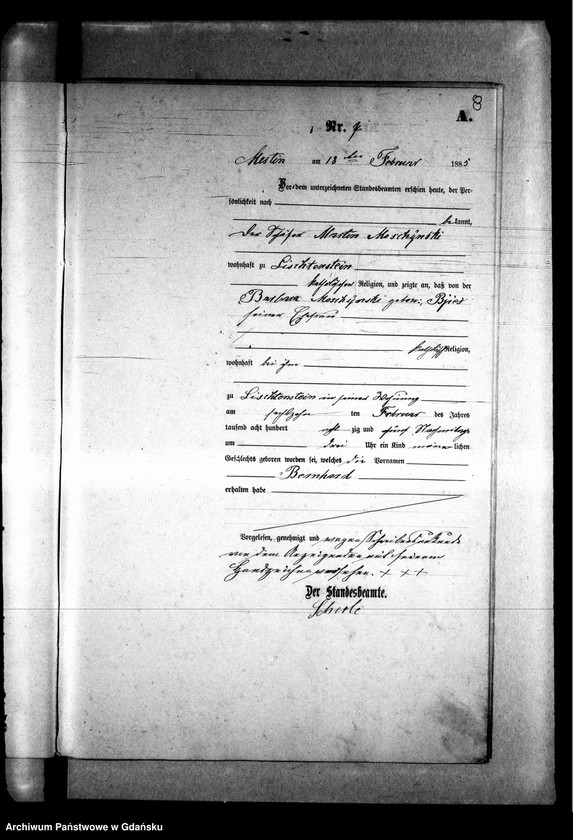 8
A.
Nr. 7
Mestin am 18 ten Februar 1885
Vor dem unterzeichneten Standesbeamten erschien heute, der Per-
sönlichkeit nach
bekannt,
der Schäfer Martin
wohnhaft zu Lischtenstein
katholischer Religion, und zeigte an, daß von der
Barbara geborne
seiner Ehefrau
katholischer Religion,
wohnhaft bei ihm
zu Lischtenstein in seiner Wohnung
am sechszehn ten Februar des Jahres
tausend acht hundert acht zig und fünf Nachmittags
um drei Uhr ein Kind männlichen
Geschlechts geboren worden sei, welches die Vornamen
Bernhard
erhalten habe
Vorgelesen, genehmigt und wegen
von dem Anzeigenden mit seinem
Handzeichen versehen. + + +
Der Standesbeamte.
Archiwum Państwowe w Gdańsku